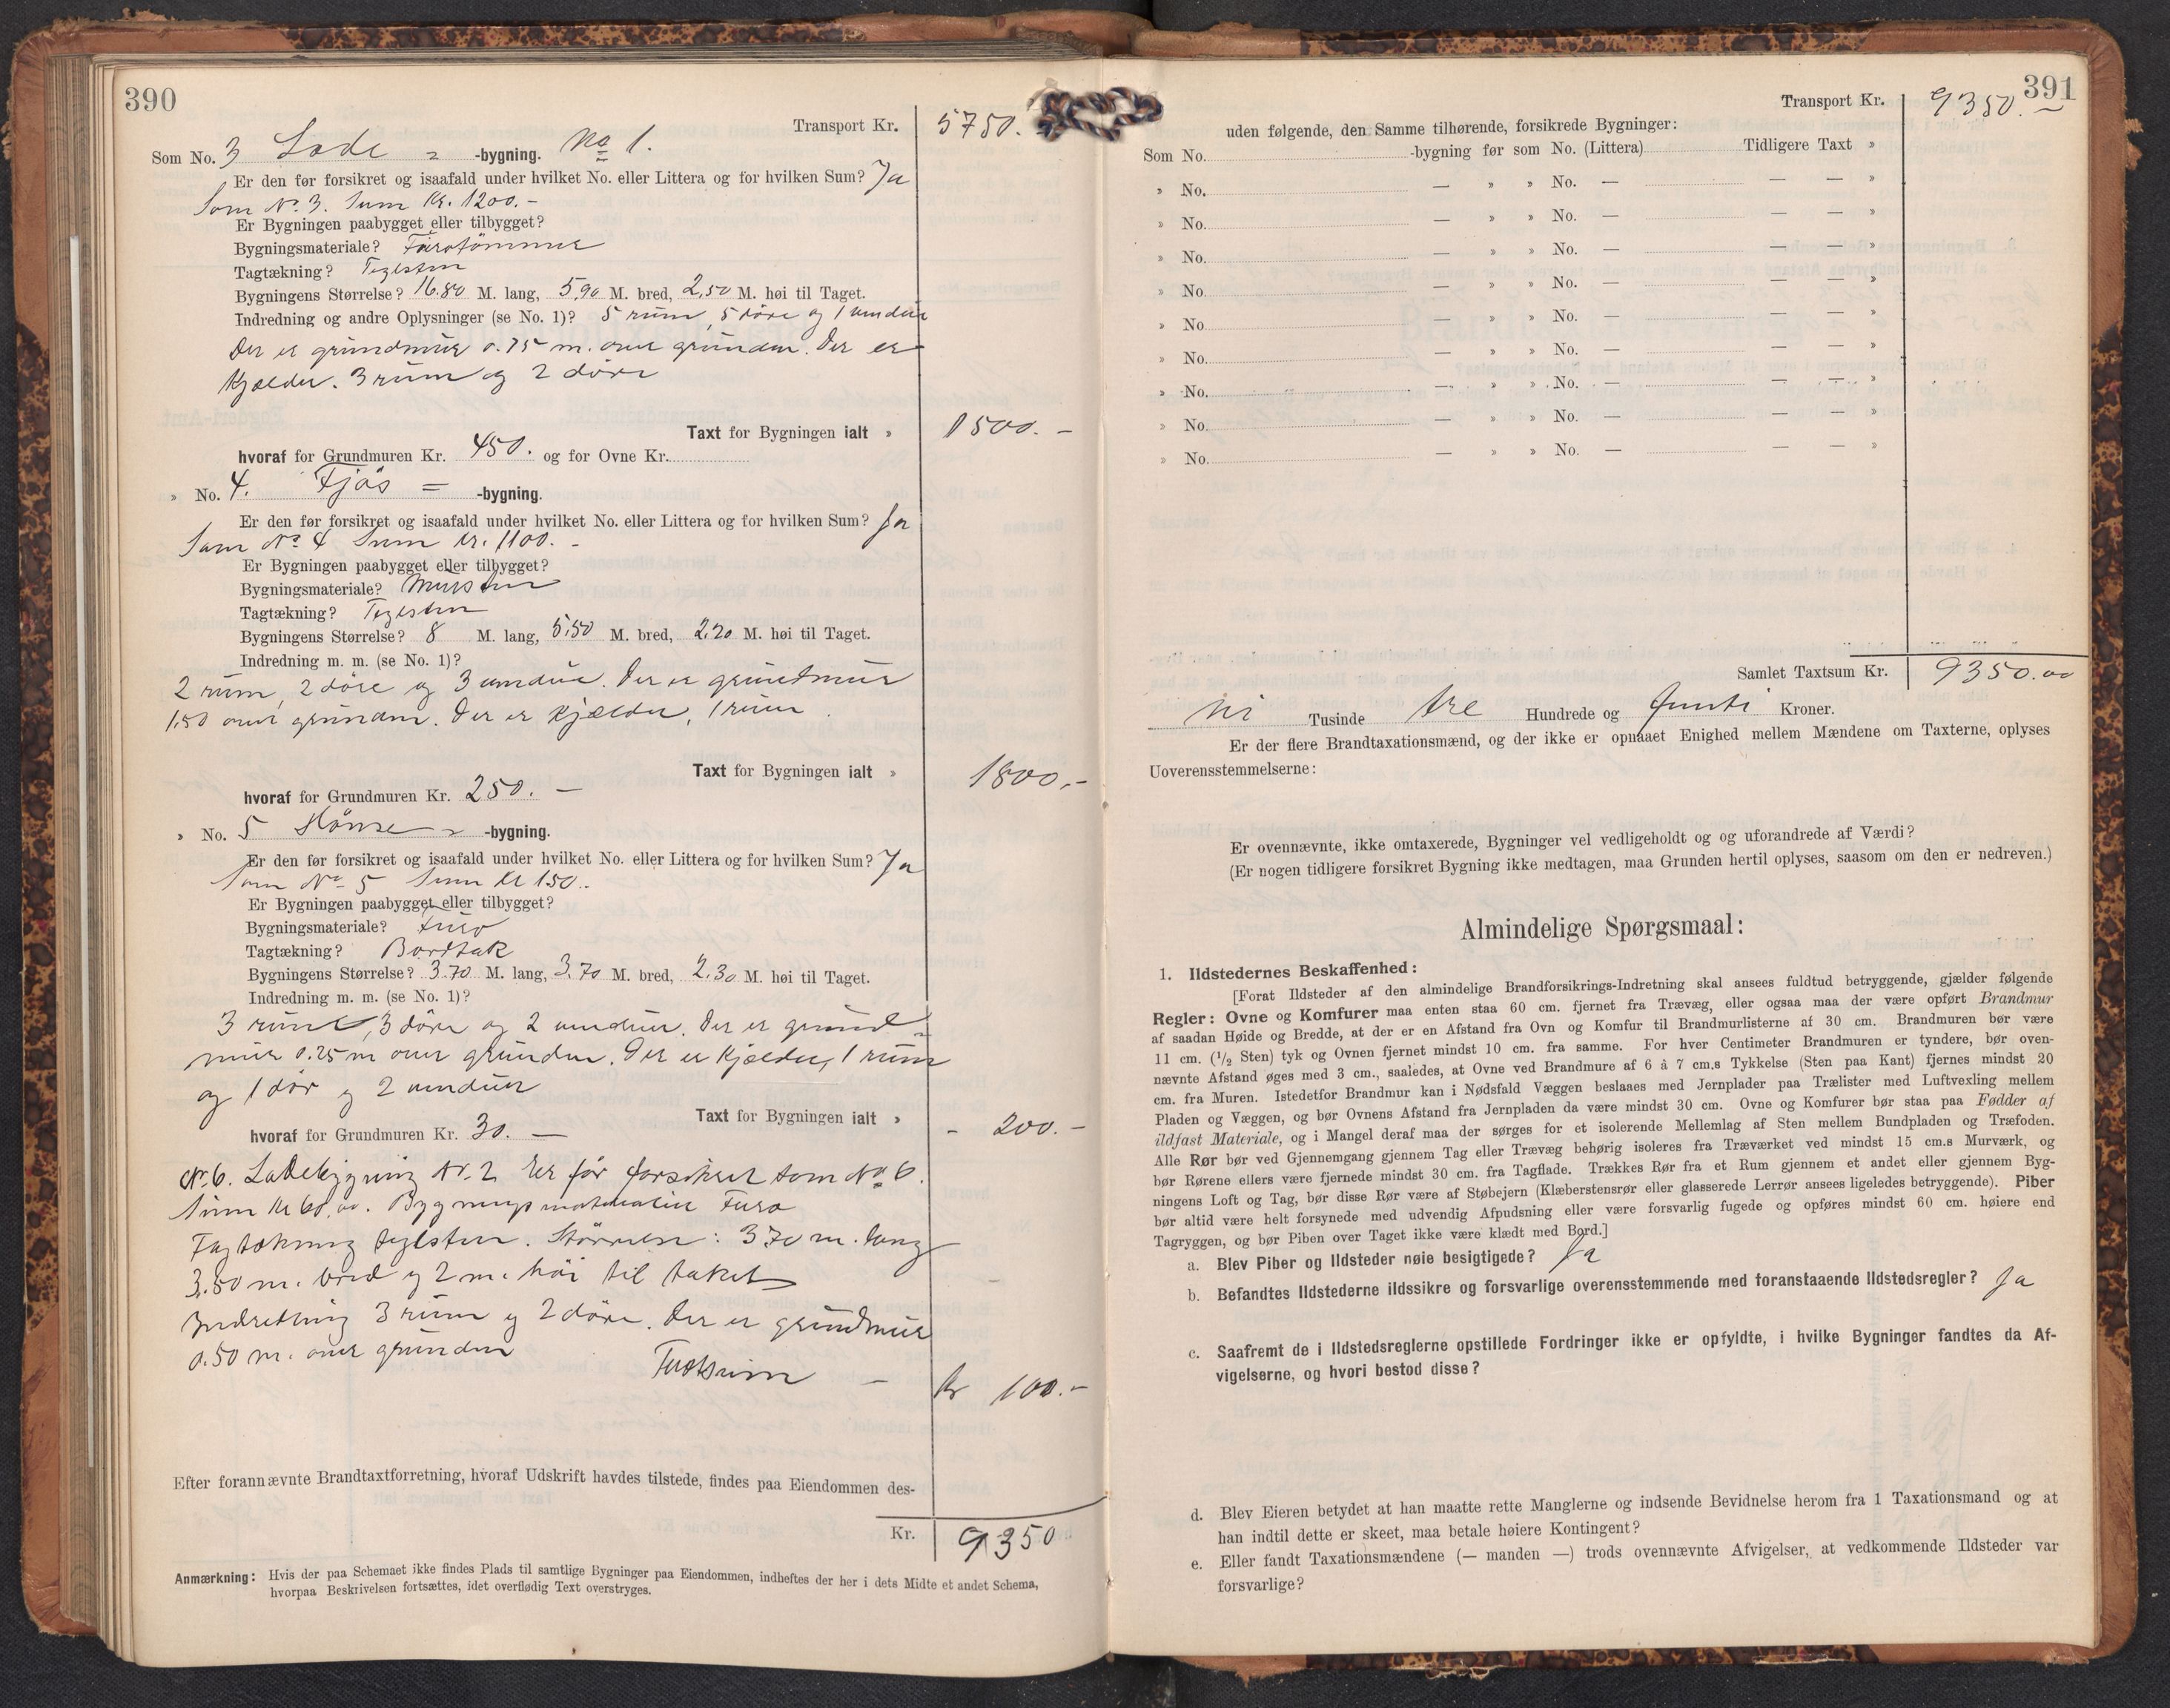 390
Transport Kr. 5750.
Som No. 3 Lade = -bygning. No 1.
Er den før forsikret og isaafald under hvilket No. eller Littera og for hvilken Sum? Ja
Som No. 3. Sum Kr. 1200.-
Er Bygningen paabygget eller tilbygget?
Bygningsmateriale? Furotömmer
Tagtækning? Teglsten
Bygningens Størrelse? 16.80 M. lang, 5,90 M. bred, 2,50 M. høi til Taget.
Indredning og andre Oplysninger (se No. 1)? 5 rum, 5 döre og 1 vindue
Der er grundmur 0.75 m. over grunden. Der er
Kjælder. 3 rum og 2 döre
Taxt for Bygningen ialt » 1500. -
hvoraf for Grundmuren Kr. 450. og for Ovne Kr.
» No. 4. Fjös = -bygning.
Er den før forsikret og isaafald under hvilket No. eller Littera og for hvilken Sum? Ja
Som No 4 Sum Kr. 1100. -
Er Bygningen paabygget eller tilbygget?
Bygningsmateriale? Mursten
Tagtækning? Teglsten
Bygningens Størrelse? 8 M. lang, 5,50 M. bred, 2,20 M. høi til Taget.
Indredning m. m. (se No. 1)?
2 rum, 2 döre og 3 vinduer. Der er grundmur
1,50 over grunden. Der er Kjælder, 1 rum
Taxt for Bygningen ialt » 1800,-
hvoraf for Grundmuren Kr. 250. —
» No. 5 Hönse = -bygning.
Er den før forsikret og isaafald under hvilket No. eller Littera og for hvilken Sum? Ja
Som No 5 Sum Kr 150..
Er Bygningen paabygget eller tilbygget?
Bygningsmateriale? Furo
Tagtækning? Bordtak
Bygningens Størrelse? 3.70 M. lang, 3,70 M. bred, 2.30 M. høi til Taget.
Indredning m. m. (se No. 1)?
3 rum, 3 döre og 2 vinduer. Der er grund=
mur 0.25 m over grunden. Der er Kjælder, 1 rum
og 1 dör og 2 vinduer
Taxt for Bygningen ialt » - 200. -
hvoraf for Grundmuren Kr. 30. —
Nr. 6. Ladebygning Nr. 2 Er før forsikret som No 6.
Sum Kr 60,00. Bygningsmateriale Furo
Tagtækning teglsten. Störrelse: 3.70 m. lang
3.50 m. bred og 2 m. höi til taket
Indredning 3 rum og 2 döre. Der er grundmur
0.50 m. over grunden
Taxtsum — Kr 100.-
Efter forannævnte Brandtaxtforretning, hvoraf Udskrift havdes tilstede, findes paa Eiendommen des-
Kr. 9350
Anmærkning: Hvis der paa Schemaet ikke findes Plads til samtlige Bygninger paa Eiendommen, indheftes der her i dets Midte et andet Schema,
hvorpaa Beskrivelsen fortsættes, idet overflødig Text overstryges.
391
Transport Kr. 9350.-
uden følgende, den Samme tilhørende, forsikrede Bygninger:
Som No. -bygning før som No. (Littera) Tidligere Taxt »
» No. — » » No. — — — »
» No. — » » No. — — — »
» No. — » » No. — — — »
» No. — » » No. — — — »
» No. — » » No. — — — »
» No. — » » No. — — — »
» No. — » » No. — — — »
» No. — » » No. — — — »
» No. — » » No. — — — »
Samlet Taxtsum Kr. 9350.00
Ni Tusinde tre Hundrede og femti Kroner.
Er der flere Brandtaxationsmænd, og der ikke er opnaaet Enighed mellem Mændene om Taxterne, oplyses
Uoverensstemmelserne:
Er ovennævnte, ikke omtaxerede, Bygninger vel vedligeholdt og og uforandrede af Værdi?
(Er nogen tidligere forsikret Bygning ikke medtagen, maa Grunden hertil oplyses, saasom om den er nedreven.)
Almindelige Spørgsmaal:
1. Ildstedernes Beskaffenhed:
[Forat Ildsteder af den almindelige Brandforsikrings-Indretning skal ansees fuldtud betryggende, gjælder følgende
Regler: Ovne og Komfurer maa enten staa 60 cm. fjernet fra Trævæg, eller ogsaa maa der være opført Brandmur
af saadan Høide og Bredde, at der er en Afstand fra Ovn og Komfur til Brandmurlisterne af 30 cm. Brandmuren bør være
11 cm. (1/2 Sten) tyk og Ovnen fjernet mindst 10 cm. fra samme. For hver Centimeter Brandmuren er tyndere, bør oven-
nævnte Afstand øges med 3 cm., saaledes, at Ovne ved Brandmure af 6 à 7 cm.s Tykkelse (Sten paa Kant) fjernes mindst 20
cm. fra Muren. Istedetfor Brandmur kan i Nødsfald Væggen beslaaes med Jernplader paa Trælister med Luftvexling mellem
Pladen og Væggen, og bør Ovnens Afstand fra Jernpladen da være mindst 30 cm. Ovne og Komfurer bør staa paa Fødder af
ildfast Materiale, og i Mangel deraf maa der sørges for et isolerende Mellemlag af Sten mellem Bundpladen og Træfoden.
Alle Rør bør ved Gjennemgang gjennem Tag eller Trævæg behørig isoleres fra Træværket ved mindst 15 cm.s Murværk, og
bør Rørene ellers være fjernede mindst 30 cm. fra Tagflade. Trækkes Rør fra et Rum gjennem et andet eller gjennem Byg-
ningens Loft og Tag, bør disse Rør være af Støbejern (Klæberstensrør eller glasserede Lerrør ansees ligeledes betryggende). Piber
bør altid være helt forsynede med udvendig Afpudsning eller være forsvarlig fugede og opføres mindst 60 cm. høiere end
Tagryggen, og bør Piben over Taget ikke være klædt med Bord.]
a. Blev Piber og Ildsteder nøie besigtigede? Ja
b. Befandtes Ildstederne ildssikre og forsvarlige overensstemmende med foranstaaende Ildstedsregler? Ja
c. Saafremt de i Ildstedsreglerne opstillede Fordringer ikke er opfyldte, i hvilke Bygninger fandtes da Af-
vigelserne, og hvori bestod disse?
d. Blev Eieren betydet at han maatte rette Manglerne og indsende Bevidnelse herom fra 1 Taxationsmand og at
han indtil dette er skeet, maa betale høiere Kontingent?
e. Eller fandt Taxationsmændene (— manden —) trods ovennævnte Afvigelser, at vedkommende Ildsteder var
forsvarlige?